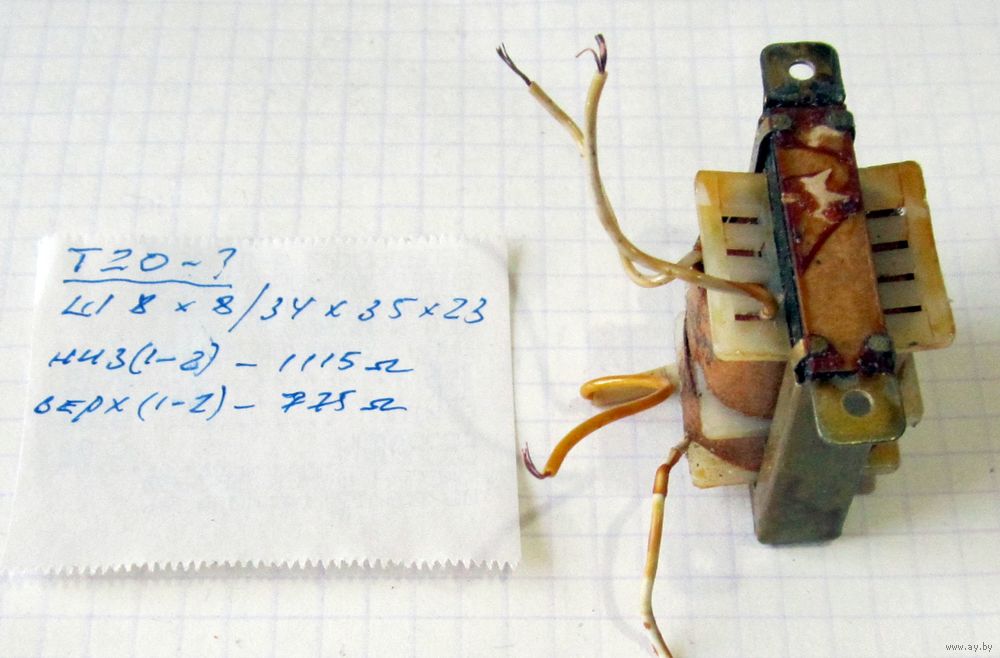 Т20-?
Ш 8 х 8/34 х 35 х 23
низ (1-2) - 1115 Ω
верх (1-2) - 775 Ω
www.ay.by